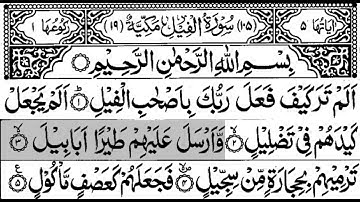 اٰيَاتُهَا ٥ (١٠٥) سُوْرَةُ الْفِيْلِ مَكِّيَّةٌ (١٩) رُكُوْعُهَا ١
بِسْمِ اللّٰهِ الرَّحْمٰنِ الرَّحِيْمِ
اَلَمْ تَرَ كَيْفَ فَعَلَ رَبُّكَ بِاَصْحٰبِ الْفِيْلِ ۝١ اَلَمْ يَجْعَلْ
كَيْدَهُمْ فِيْ تَضْلِيْلٍ ۝٢ وَّاَرْسَلَ عَلَيْهِمْ طَيْرًا اَبَابِيْلَ ۝٣
تَرْمِيْهِمْ بِحِجَارَةٍ مِّنْ سِجِّيْلٍ ۝٤ فَجَعَلَهُمْ كَعَصْفٍ مَّاْكُوْلٍ ۝٥